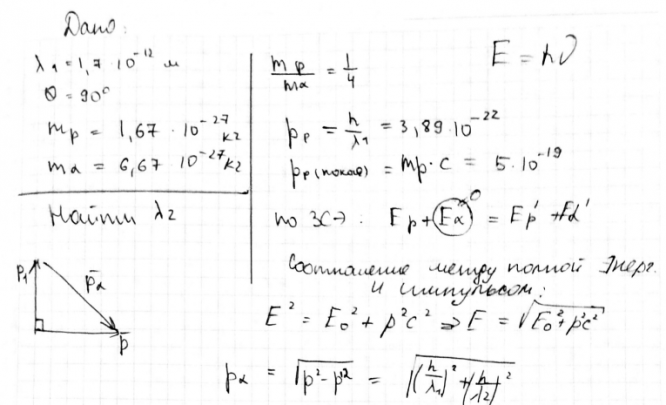 Дано:
λ₁ = 1,7 · 10⁻¹² м
Θ = 90°
m_p = 1,67 · 10⁻²⁷ кг
m_α = 6,67 · 10⁻²⁷ кг
Найти λ₂
p₁
p̄_α
p̄
m_p / m_α = 1/4
E = hν
p_p = h/λ₁ = 3,89 · 10⁻²²
p_p(покоя) = m_p · c = 5 · 10⁻¹⁹
по ЗСЭ: E_p + E_α⁰ = E_p' + E_α'
Соотношение между полной энерг.
и импульсом:
E² = E₀² + p²c² ⇒ E = √(E₀² + p²c²)
p_α = √(p² - p²) = √((h/λ₁)² + (h/λ₂)²)